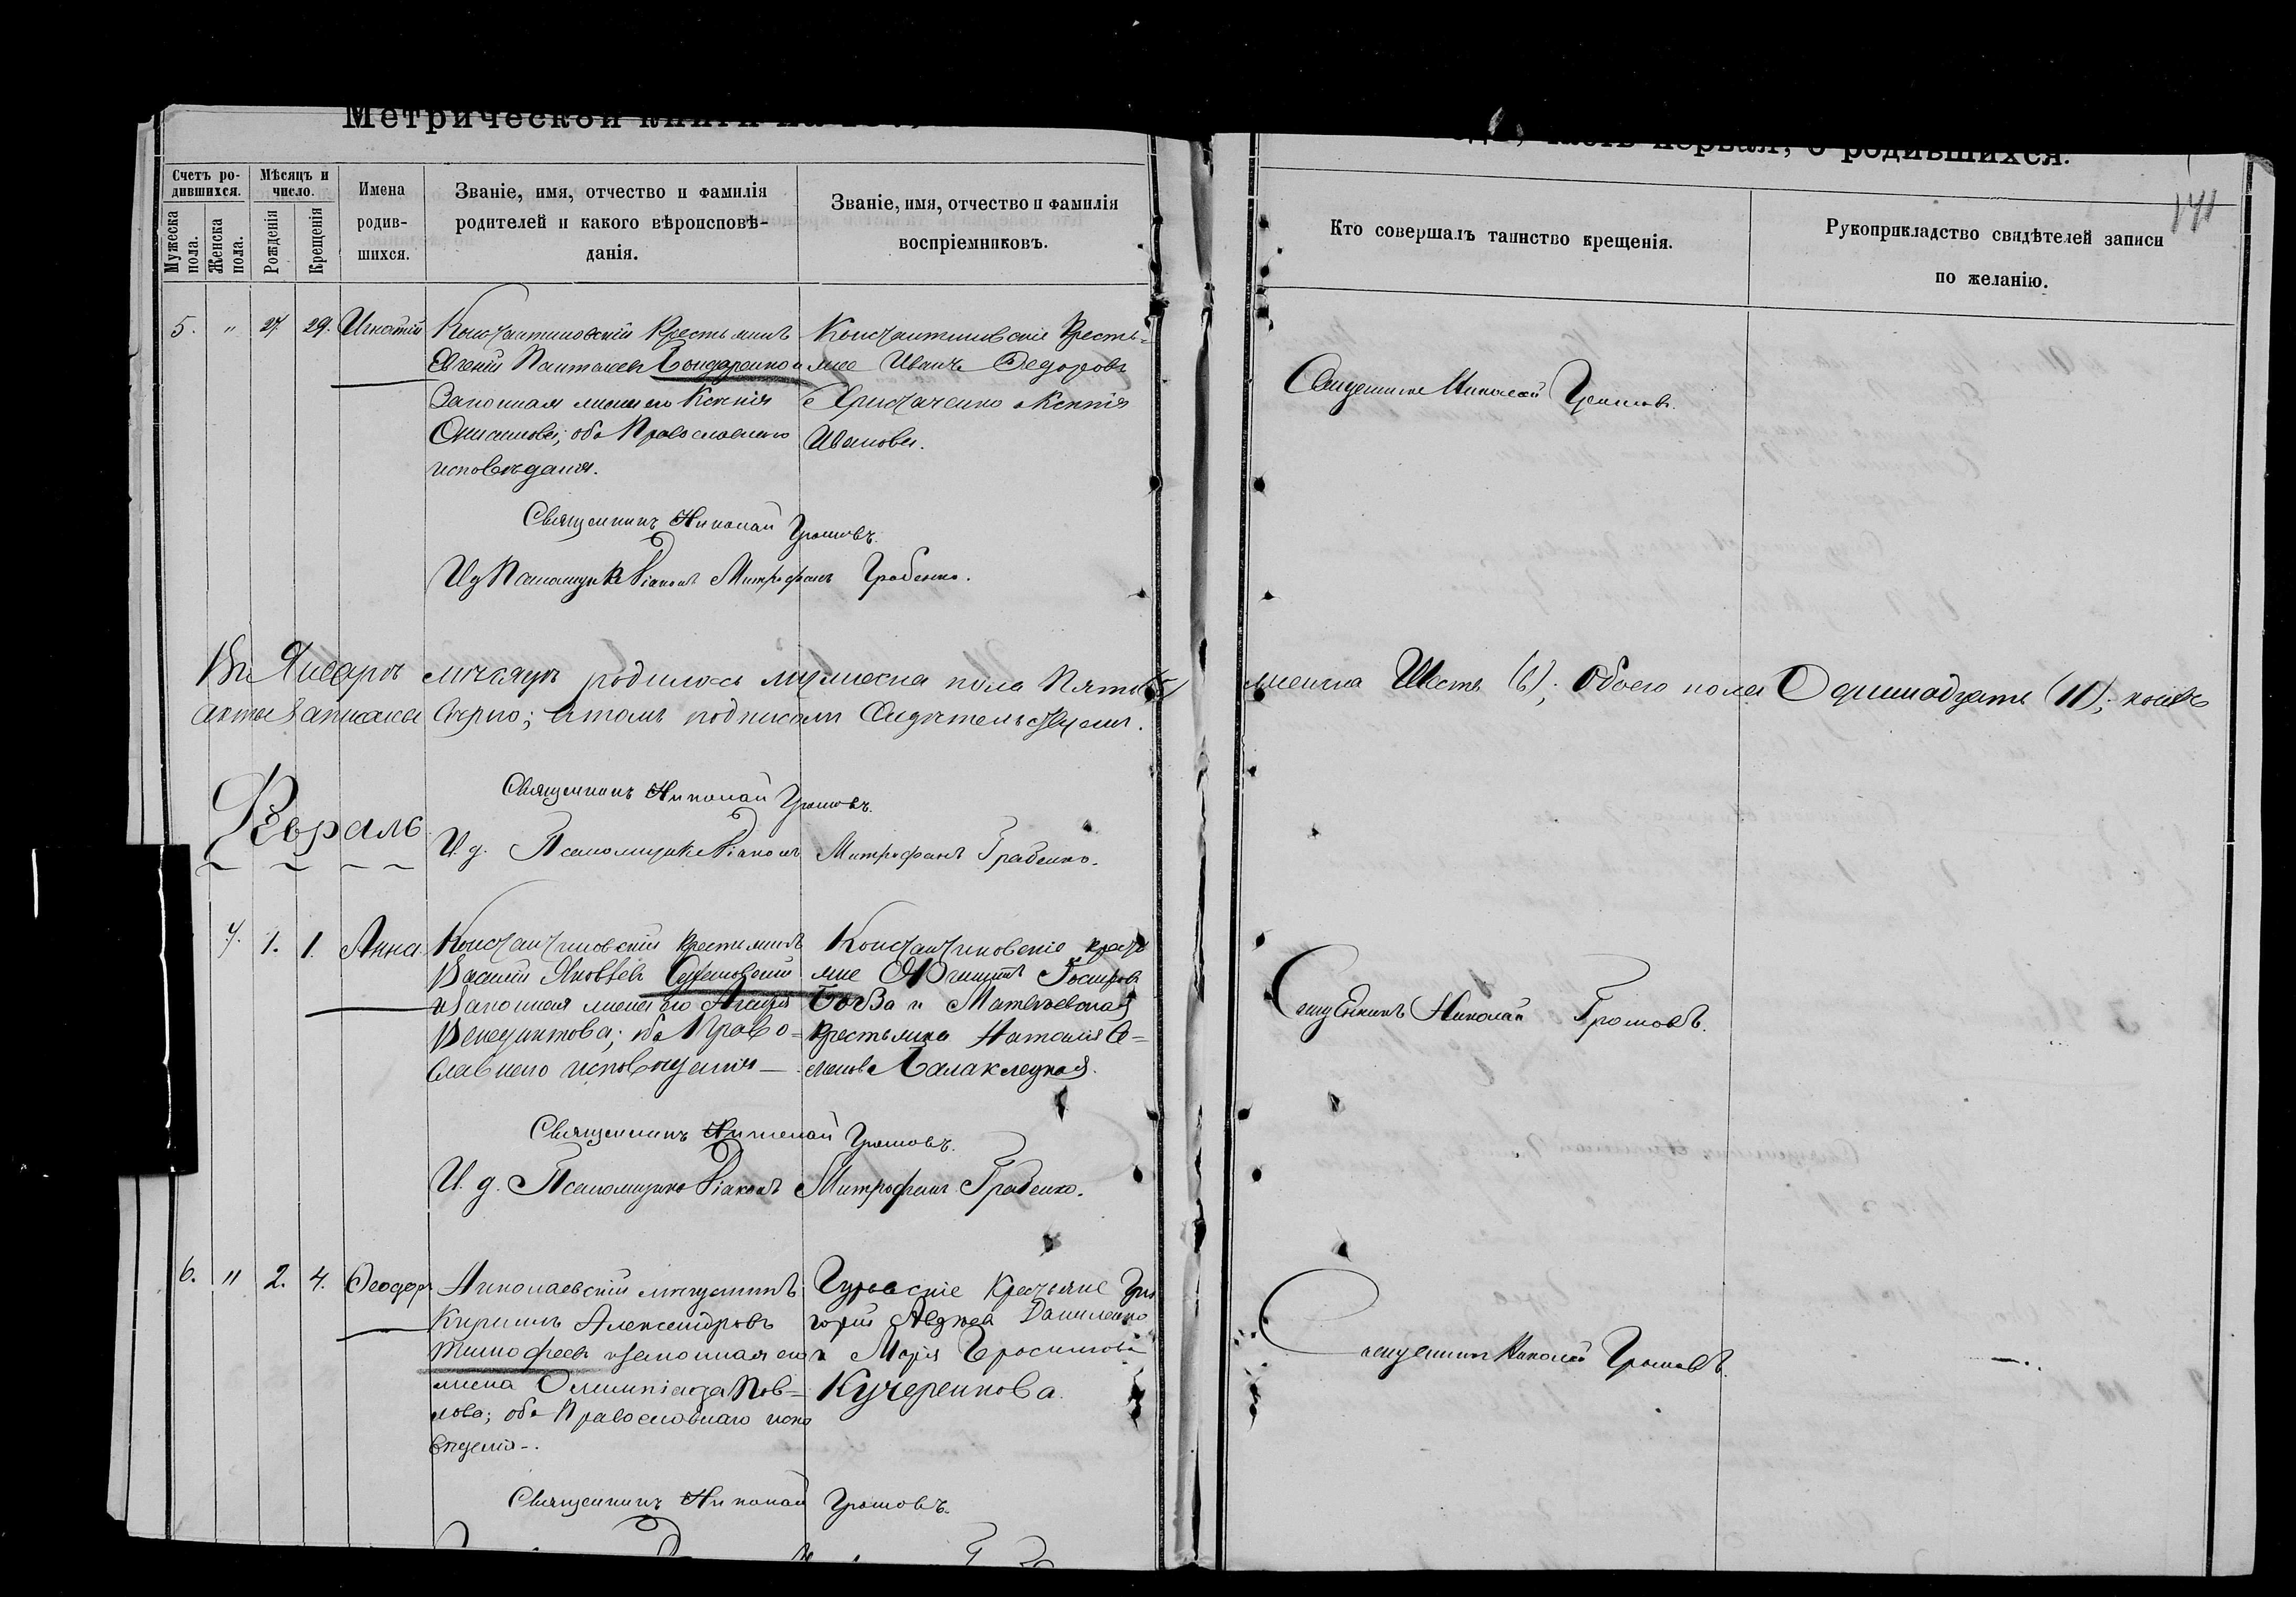 Метрической книги на
часть первая, о родившихся.
141
Счетъ родившихся.
Мужеска пола.
Женска пола.
Мѣсяцъ и число.
Рожденія
Крещенія
Имена родившихся.
Званіе, имя, отчество и фамилія
родителей и какого вѣроисповѣ-
данія.
Званіе, имя, отчество и фамилія
воспріемниковъ.
Кто совершалъ таинство крещенія.
Рукоприкладство свидѣтелей записи
по желанію.
5. " 27. 29. Игнатій
Константиновскій Крестьянинъ
Евгеній Пантелеевъ Бондаренко и
Законная жена его Ксенія
Онисимова; оба Православнаго
исповѣданія.
Константиновскіе Кресть-
яне Иванъ Федоровъ
Христаченко и Ксенія
Иванова.
Священникъ Николай Громовъ.
Священникъ Николай Громовъ.
Ид Псаломщика Діаконъ Митрофанъ Грабенко.
Въ Январѣ мѣсяцѣ родилось мужеска пола Пять (5) женска Шесть (6); Обоего пола Одиннадцать (11);
акты записаны вѣрно; въ томъ подписомъ Свидѣтельствуемъ.
Священникъ Николай Громовъ.
Февраль
И. д. Псаломщика Діаконъ Митрофанъ Грабенко.
7. 1. 1. Анна.
Константиновскій крестьянинъ
Василій Яковлевъ
и Законная жена его
Венедиктова; оба Право-
славнаго исповѣданія —
Константиновскіе кресть
яне
и Матвѣевская
Крестьянка Наталія Се-
менова Балаклецкая.
Священникъ Николай Громовъ.
Священникъ Николай Громовъ.
И. д. Псаломщика Діаконъ Митрофанъ Грабенко.
6. " 2. 4. Ѳеодоръ
Николаевскій мѣщанинъ
Кириллъ Александровъ
Тимофеевъ и законная его
жена Олимпіада Пав-
лова; оба Православнаго испо
вѣданія -.
Гурьевскіе Крестьяне Гри
горій Авдѣевъ Даниленко
и Марія Еросимова
Кучеренкова.
Священникъ Николай Громовъ.
Священникъ Николай Громовъ.